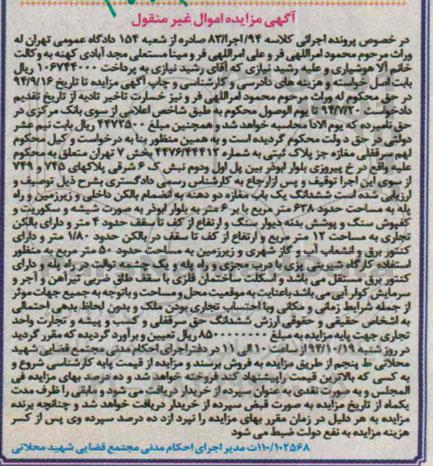 آگهی مزایده اموال غیر منقول
در خصوص پرونده اجرائی کلاسه ۹۴/اجرا/۸۳ صادره از شعبه ۱۵۴ دادگاه عمومی تهران له
وراث مرحوم محمود امراللهی فر و علی امراللهی فر و مینا مستعلی مجدآبادی کهنه به وکالت
خانم آلا هوشیاری و علیه رشید نیازی که آقای رشید نیازی به پرداخت ۱۰۶۷۴۴۰۰۰ ریال
بابت اصل خواسته و هزینه های دادرسی و کارشناسی و چاپ آگهی مزایده تا تاریخ ۹۴/۹/۱۶
در حق محکوم له وراث مرحوم محمود امراللهی فر و نیز خسارت تاخیر تادیه از تاریخ تقدیم
دادخواست ۹۴/۷/۳۰ تا یوم الوصول محکوم به طبق شاخص اعلامی از سوی بانک مرکزی در
حق نامبرده که یوم الادا محاسبه خواهد شد و همچنین مبلغ ۴۴۷۲۵۰۰ ریال بابت نیم عشر
دولتی در حق دولت محکوم گردیده است و به همین منظور بنا به درخواست وکیل محکوم
لهم سرقفلی مغازه جز پلاک ثبتی به شماره ۴۴۷۶/۴۴۴۱۲ بخش ۷ تهران متعلق به محکوم
علیه واقع در خ پیروزی بلوار ابوذر بین پل اول ودوم نبش ک ۶ شرقی پلاکهای ۷۴۵ و ۷۴۹
از سوی این اجرا توقیف و پس ازارجاع به کارشناس رسمی دادگستری بشرح ذیل توصیف و
ارزیابی شده است ششدانگ یک باب مغازه دو دهنه به انضمام بالکن داخلی و زیرزمین و راه
پله به مساحت حدود ۶۳۸ متر مربع با بر ۶ متر به بلوار ابوذر به صورت شیشه و سکوریت و
کفپوش سنگ و پوشش بدنه دیوار سنگ و ارتفاع از کف تا سقف حدود ۴ متر و دارای بالکن
تجاری به مساحت ۱۲ متر مربع و ارتفاع از کف تا سقف در بالکن حدود ۱/۸۰ متر و دارای
کنتور برق و انشعاب آب و گاز شهری و زیرزمین به مساحت حدود ۵۰ متر مربع به منظور
استفاده کارگاه شیرینی پزی با درب مجزی و راه پله و یک چشمه توالت در راه پله و دارای
کنتور برق مستقل می باشد و اسکلت ساختمان فلزی با سقف طاق ضربی تیرآهن و آجر و
سرمایش کولر آبی می باشد باعنایت به موقعیت محل و مساحت و باتوجه به جمیع جهات موثر
از جمله شرایط زمانی و مکانی وبا احتساب تجاری بودن ملک و بدون لحاظ بدهی احتمالی
به اشخاص حقیقی و حقوقی ارزش ششدانگ حق سرقفلی و کسب و پیشه و تجارت واحد
تجاری جهت پایه مزایده به مبلغ ۸۵۰۰۰۰۰۰۰۰ ریال تعیین و برآورد گردیده که مقرر گردید
در روز شنبه ۹۴/۱۰/۱۹ از ساعت ۱۰ الی ۱۱ در دفتر اجرای احکام مدنی مجتمع قضایی شهید
محلاتی ط پنجم از طریق مزایده به فروش برسند و مزایده از قیمت پایه کارشناسی شروع و
به کسی که بالاترین قیمت را پیشنهاد کند فروخته خواهد شد و ده درصد بهای مزایده فی
المجلس و به صورت نقدی به عنوان سپرده از خریدار دریافت می شود و مابقی را ظرف مدت
یکماه از تاریخ مزایده به صورت قبض سپرده از خریدار دریافت خواهد شد و چنانچه برنده
مزایده به هر دلیل در زمان مقرر بهای مزایده را نپرد ازد ده درصد سپرده وی پس از کسر
هزینه مزایده به نفع دولت ضبط می شود
۱۱۰/۱۰۲۵۶۸ت مدیر اجرای احکام مدنی مجتمع قضایی شهید محلاتی